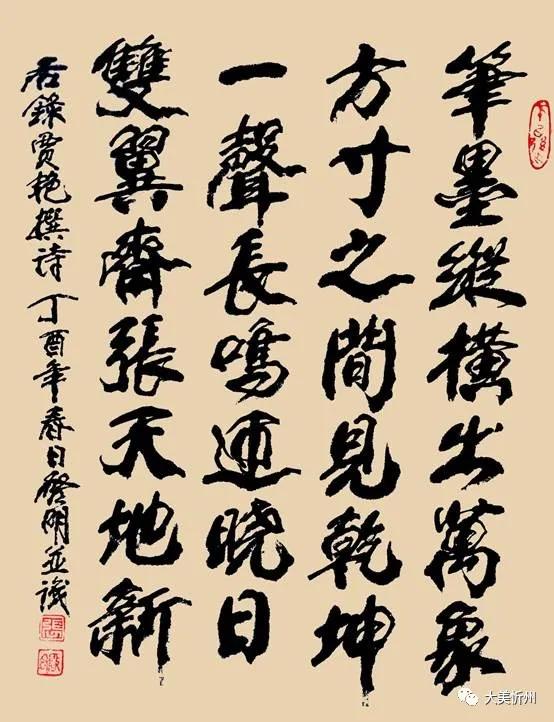 筆墨縱橫出萬象
方寸之間見乾坤
一聲長鳴迎曉日
雙翼齊張天地新
右錄賈艳撰诗丁酉年春日啓明並識
大美忻州